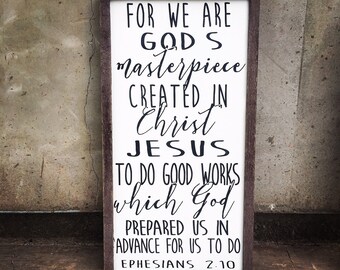 FOR WE ARE
GOD S
masterpiece
CREATED IN
Christ
JESUS
TO DO GOOD WORKS
which God
PREPARED US IN
ADVANCE FOR US TO DO
EPHESIANS 2:10